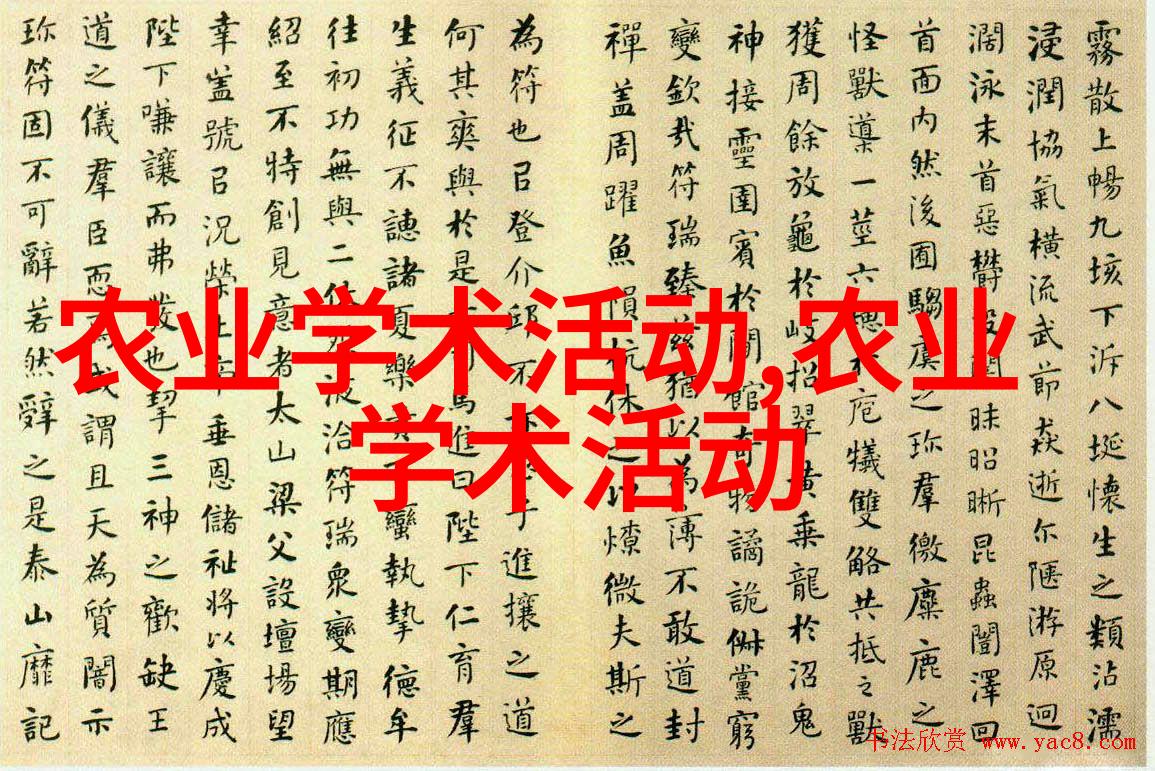 霧散上暢九垓下泝八埏懷生之類沾濡
浸潤協氣橫流武節猋逝尓陿游原迥
濶泳末首惡欝沒闇昧昭晰昆蟲闓澤回
首面内然後囿騶虞之珎羣徼麋鹿之
怪獸導一莖六穗於庖犧雙觡共抵之獸
獲周餘放龜於岐招翠黄乗龍於沼鬼
神接靈圉賓於閒館奇物譎詭俶儻窮
變欽哉符瑞臻兹猶以為薄不敢道封
禪盖周躍魚隕杭休之以燎微夫斯之
為符也㠯登介邱不乎進攘之道
何其爽與於是司馬進曰陛下仁育羣
生義征不譓諸夏樂貢蠻執摯德牟
往初功無與二休浹洽符瑞衆變期應
紹至不特創見意者太山梁父設壇場望
幸盖號㠯况榮上帝垂恩儲祉將以慶成
陛下嗛讓而弗發也挈三神之歡缺王
道之儀羣臣恧焉或謂且天為質闇示
珎符固不可辭若然辭之是泰山靡記
农业学术活动,农业
学术活动
书法欣赏 www.yac8.com